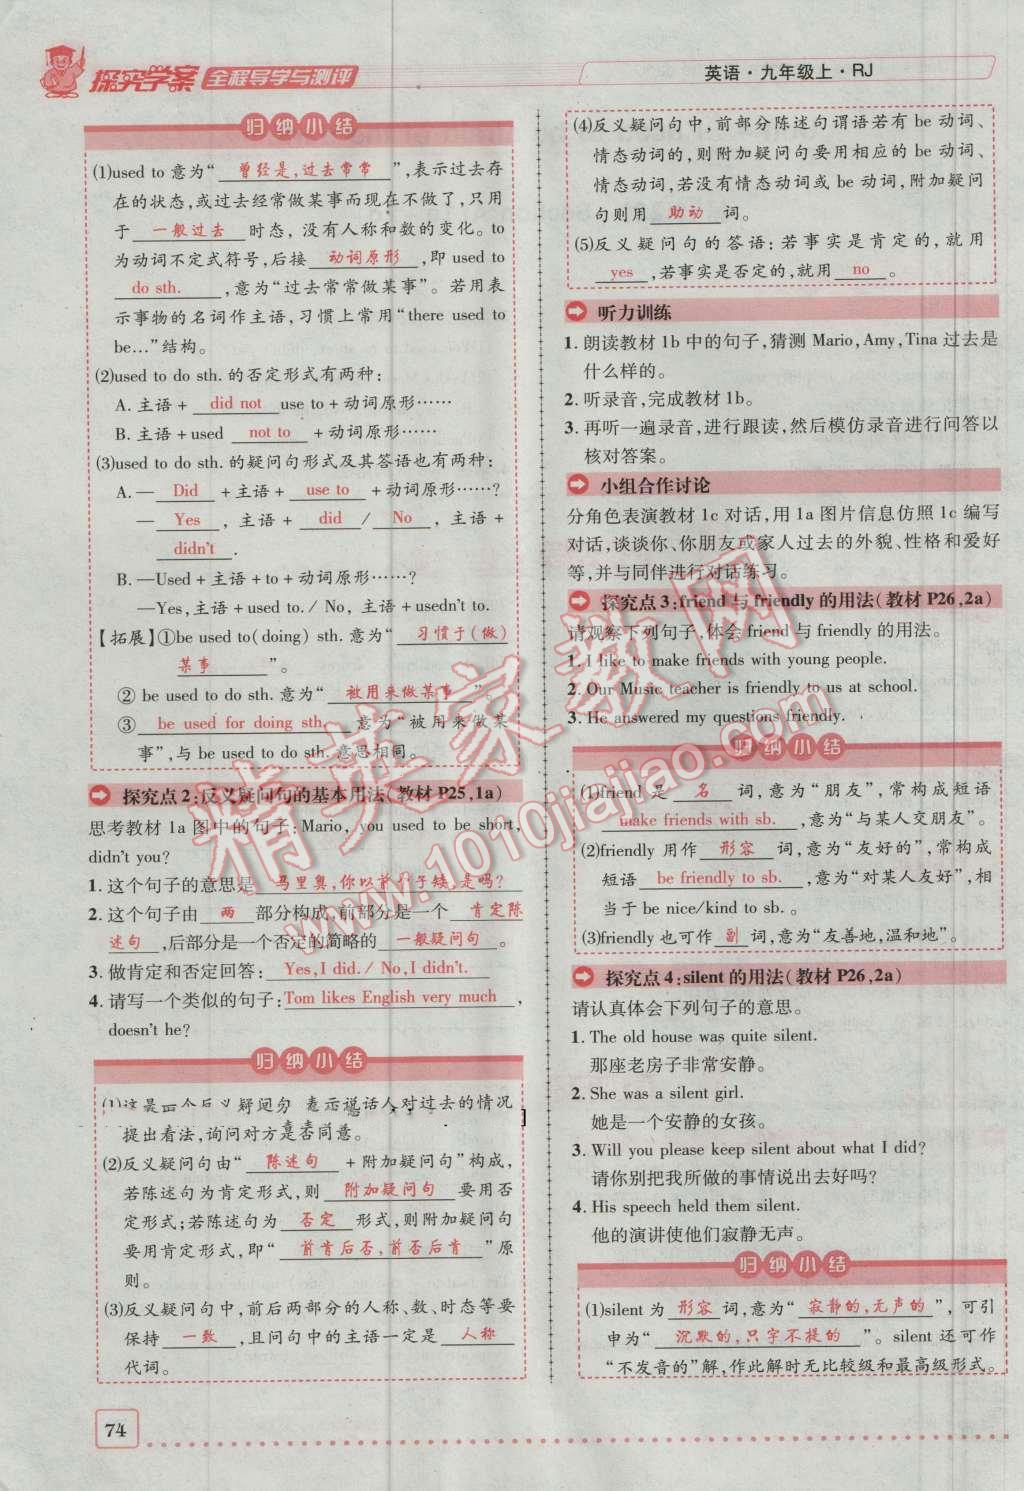 探究学案 全程导学与测评
英语·九年级上·RJ
归纳小结
(1)used to 意为“ 曾经是,过去常常 ”,表示过去存
在的状态,或过去经常做某事而现在不做了,只用
于 一般过去 时态,没有人称和数的变化。to
为动词不定式符号,后接 动词原形 ,即 used to
do sth. ,意为“过去常常做某事”。若用表
示事物的名词作主语,习惯上常用“there used to
be…”结构。
(2)used to do sth. 的否定形式有两种:
A. 主语 + did not use to + 动词原形……
B. 主语 + used not to + 动词原形……
(3)used to do sth. 的疑问句形式及其答语也有两种:
A. — Did + 主语 + use to + 动词原形……?
— Yes , 主语 + did / No , 主语 +
didn't .
B. —Used + 主语 + to + 动词原形……?
—Yes, 主语 + used to. / No, 主语 + usedn't to.
【拓展】①be used to(doing) sth. 意为“ 习惯于(做)
某事 ”。
② be used to do sth. 意为“ 被用来做某事 ”
③ be used for doing sth. 意为“被用来做某
事”,与 be used to do sth. 意思相同。
探究点 2:反义疑问句的基本用法(教材 P25,1a)
思考教材 1a 图中的句子:Mario, you used to be short,
didn't you?
1. 这个句子的意思是 马里奥,你以前个子矮,是吗?
2. 这个句子由 两 部分构成,前部分是一个 肯定陈
述句 ,后部分是一个否定的简略的 一般疑问句 。
3. 做肯定和否定回答: Yes,I did. / No,I didn't.
4. 请写一个类似的句子: Tom likes English very much ,
doesn't he?
归纳小结
(1)这是四个反义疑问句,表示说话人对过去的情况
提出看法,询问对方是否同意。
(2)反义疑问句由“ 陈述句 + 附加疑问句”构成,
若陈述句为肯定形式,则 附加疑问句 要用否
定形式;若陈述句为 否定 形式,则附加疑问句
要用肯定形式,即“ 前肯后否,前否后肯 ”原
则。
(3)反义疑问句中,前后两部分的人称、数、时态等要
保持 一致 ,且问句中的主语一定是 人称
代词。
74
(4)反义疑问句中,前部分陈述句谓语若有 be 动词、
情态动词的,则附加疑问句要用相应的 be 动词、
情态动词,若没有情态动词或 be 动词,附加疑问
句则用 助动 词。
(5)反义疑问句的答语:若事实是肯定的,就用
yes ,若事实是否定的,就用 no 。
听力训练
1. 朗读教材 1b 中的句子,猜测 Mario,Amy,Tina 过去是
什么样的。
2. 听录音,完成教材 1b。
3. 再听一遍录音,进行跟读,然后模仿录音进行问答以
核对答案。
小组合作讨论
分角色表演教材 1c 对话,用 1a 图片信息仿照 1c 编写
对话,谈谈你、你朋友或家人过去的外貌、性格和爱好
等,并与同伴进行对话练习。
探究点 3:friend 与 friendly 的用法(教材 P26,2a)
请观察下列句子,体会 friend 与 friendly 的用法。
1. I like to make friends with young people.
2. Our Music teacher is friendly to us at school.
3. He answered my questions friendly.
归纳小结
(1)friend 是 名 词,意为“朋友”,常构成短语
make friends with sb. ,意为“与某人交朋友”。
(2)friendly 用作 形容 词,意为“友好的”,常构成
短语 be friendly to sb. ,意为“对某人友好”,相
当于 be nice/kind to sb.。
(3)friendly 也可作 副 词,意为“友善地,温和地”。
探究点 4:silent 的用法(教材 P26,2a)
请认真体会下列句子的意思。
1. The old house was quite silent.
那座老房子非常安静。
2. She was a silent girl.
她是一个安静的女孩。
3. Will you please keep silent about what I did?
请你别把我所做的事情说出去好吗?
4. His speech held them silent.
他的演讲使他们寂静无声。
归纳小结
(1)silent 为 形容 词,意为“ 寂静的,无声的 ”,可引
申为“ 沉默的,只字不提的 ”。silent 还可作
“不发音的”解,作此解时无比较级和最高级形式。
精英家教网
www.1010jiajiao.com